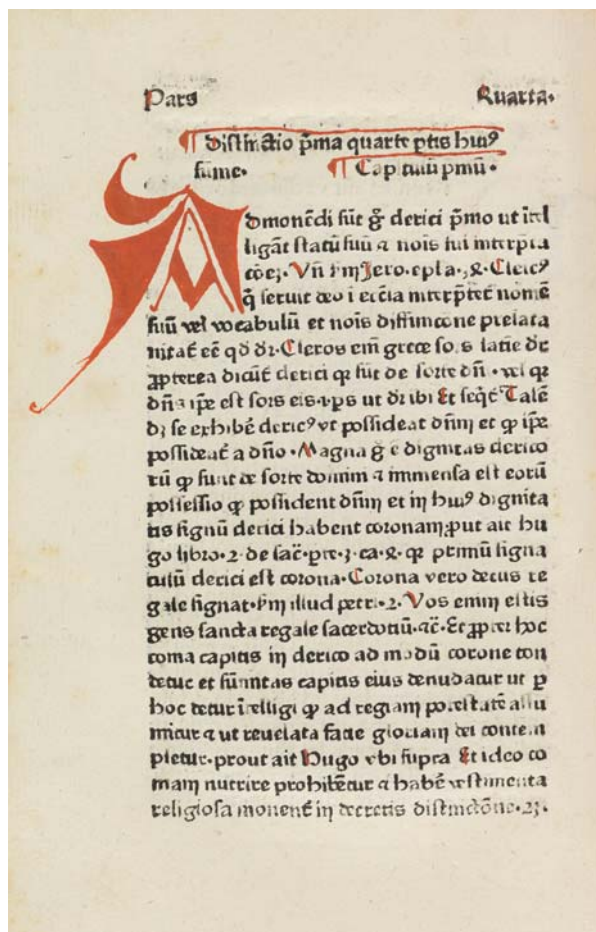 Pars Quarta.
Distinctio p̄ma quarte ꝑtis huiꝰ
sūme. Capitulū pmū.
Admonēdi sūt g̃ clerici p̄mo ut ītel
ligāt statū suū ⁊ nois sui interpta
cōeȝ. Vn̄ Jero. epla. Clericꝰ
q̄ seruit deo ī eccīa interp̄tet nomē
suū vel vocabulū et nois diffinicone prelata
nitat̄ eē qđ dr̄. Cleros em̄ grece sors latīe dr̄
ꝓpterea dicūt̄ clerici qꝛ sūt de sorte dn̄i. vel qꝛ
dn̄s ip̄e est sors eis. ut dr̄ ibi Et seqt̄ Tale
dȝ se exhibē clericꝰ vt possideat dn̄m et ꝙ ip̄e
possideat̄ a dn̄o. Magna g̃ ē dignitas clerico
rū ꝙ sunt de sorte domini ⁊ immensa est eorū
possessio ꝙ possident dn̄m et in huiꝰ dignita
tis signū clerici habent coronam ꝓut ait hu
go libro. 2. de sac̄. ꝑte. 3. ca. 8. qꝛ primū signa
culū clerici est corona. Corona vero decus re
gale signat. illud petri. 2. Vos enim estis
gens sancta regale sacerdotiū. ⁊c̄. Et ꝓpter hoc
coma capitis in clerico ad modū corone ton
detur et sūmitas capitis eius denudatur ut ꝑ
hoc detur ītelligi ꝙ ad regiam potestatē assu
mitur ⁊ ut reuelata facie gloriam dei contem
pletur. prout ait Hugo vbi supra Et ideo co
mam nutrire prohibētur ⁊ habē vestimenta
religiosa monent̄ in decretis distinctōne. 23.